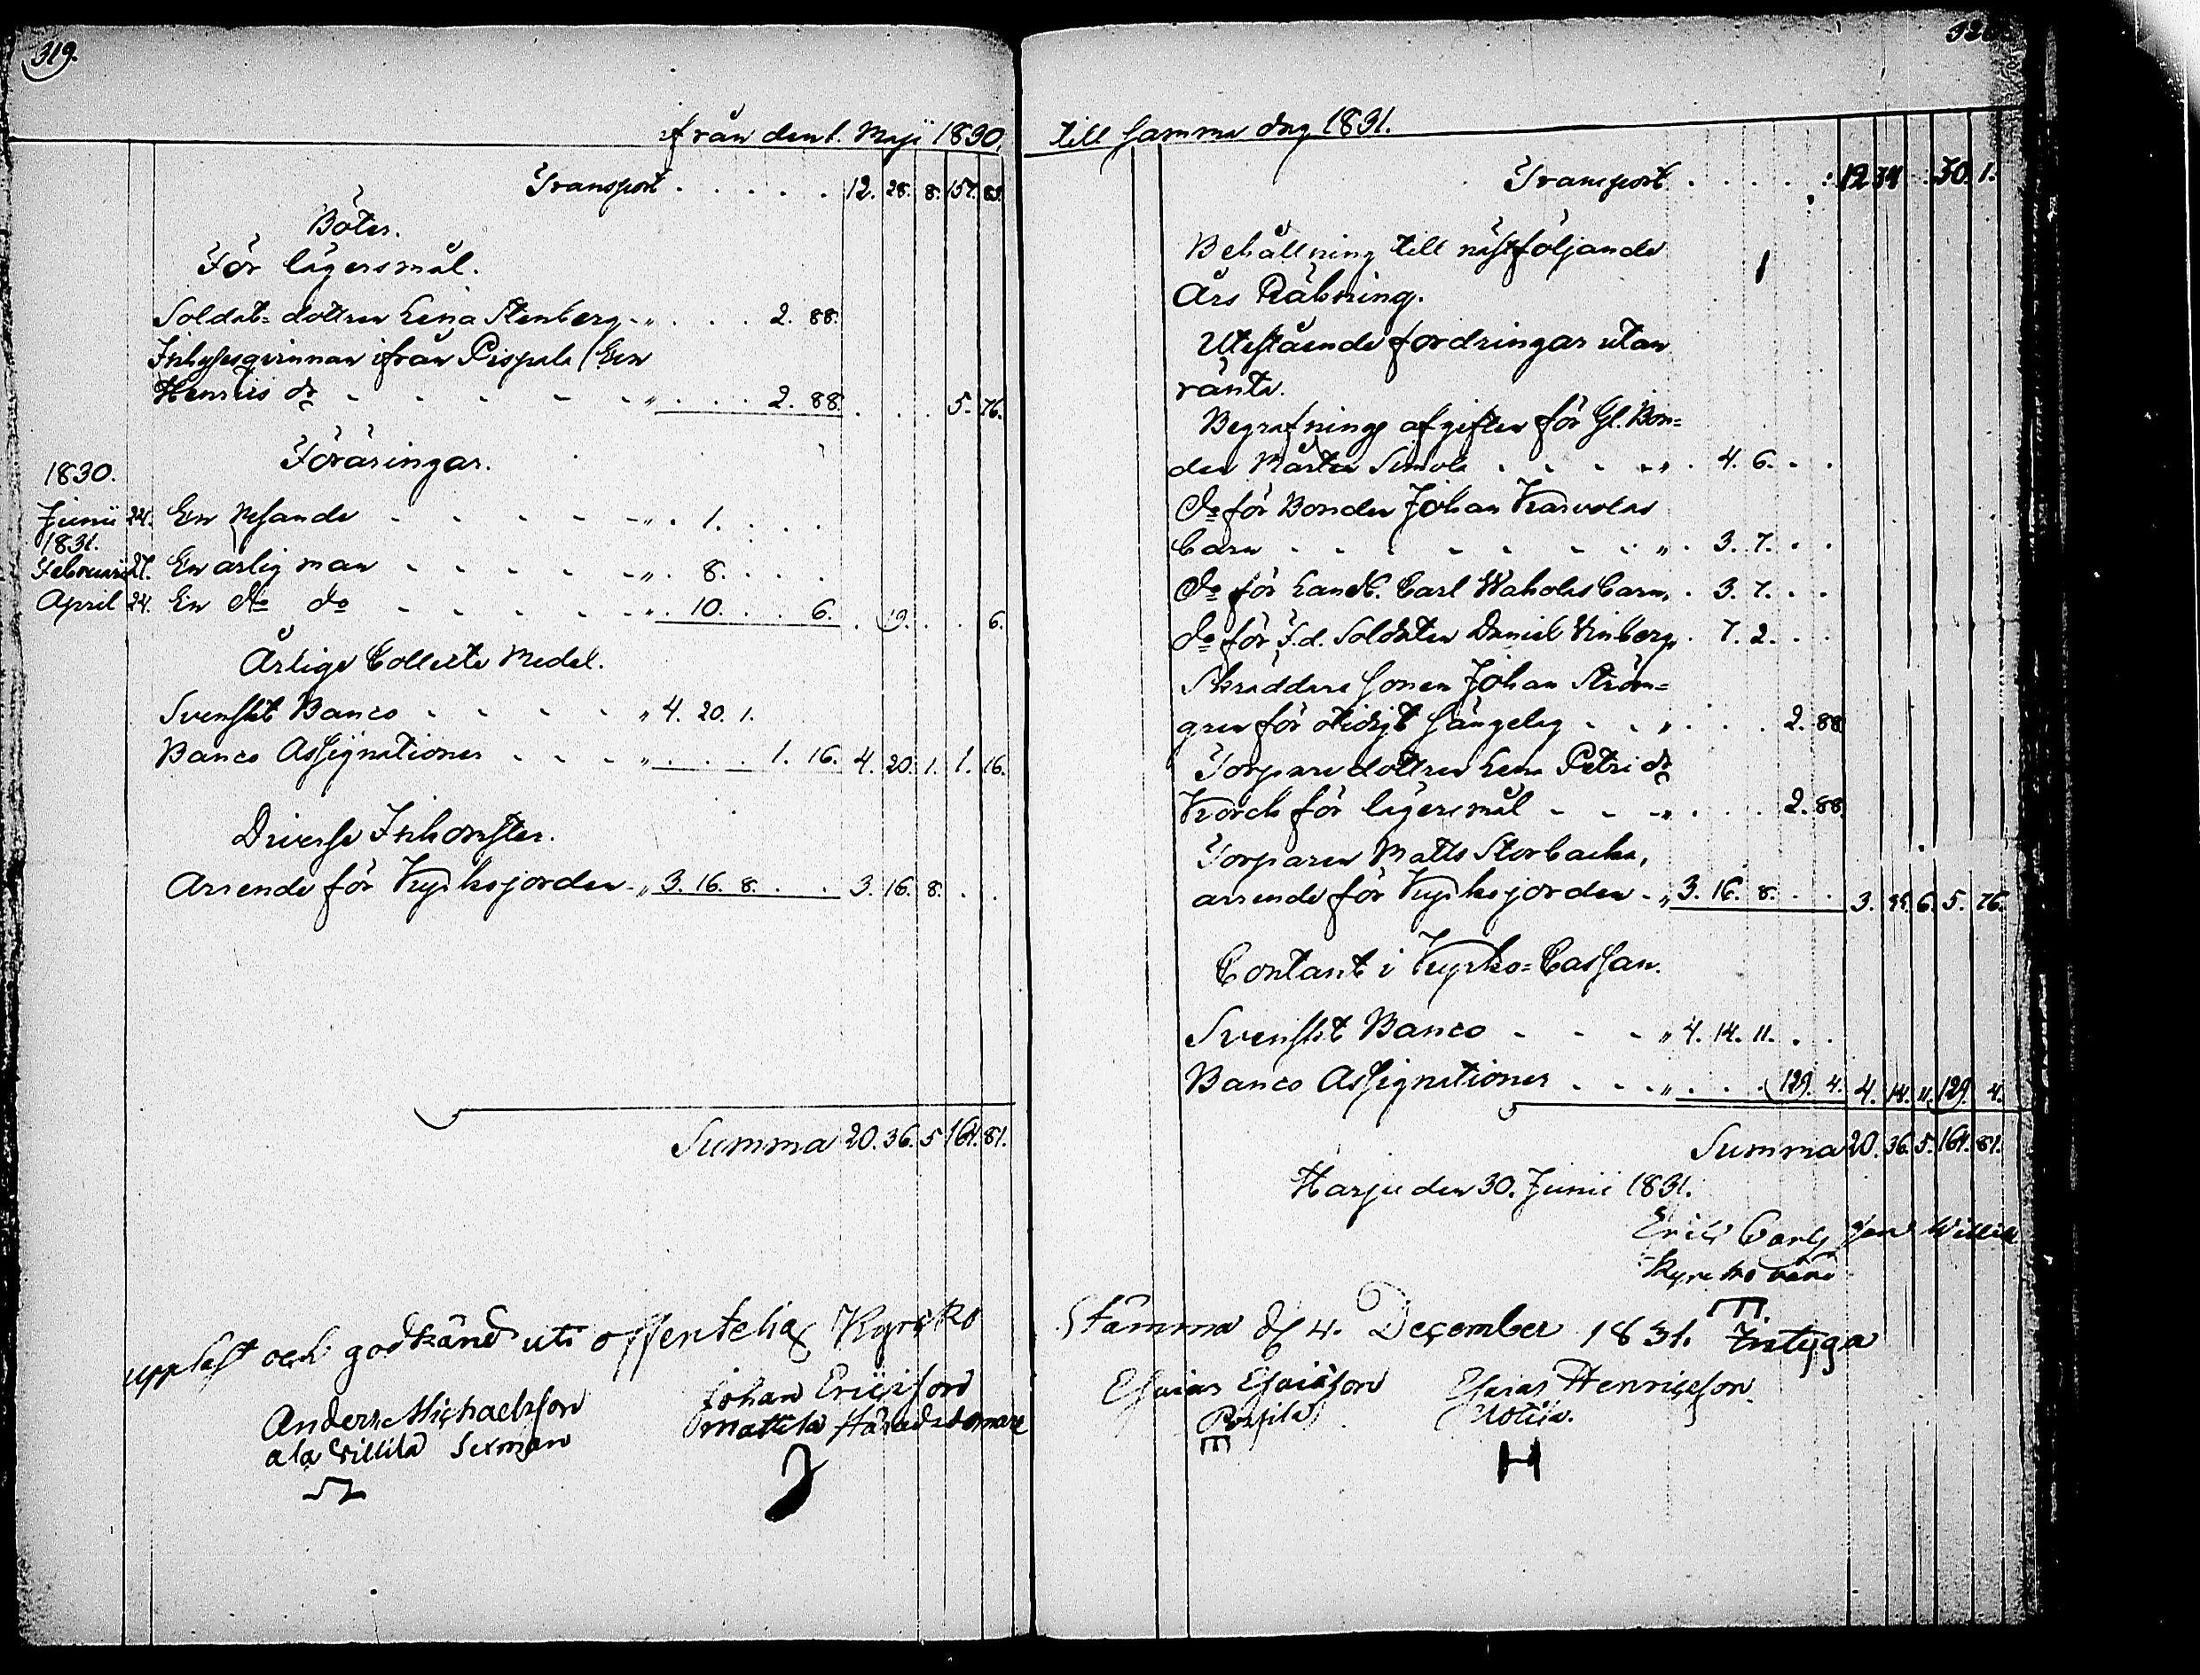 319.
ifrån den 1. Maji 1830,
Transport . . . . . 12. 28. 8. 157. 83.
Böter.
För lägersmål.
Soldat-dottren Lena Stenberg - „ . . . 2. 88.
Inhysesqvinnan ifrån Pispala
Henriks dr - - - - - „ . . . 2. 88. . . . 5. 76.
Föräringar.
1830.
Junii 24. En Resande - - - - - „ . 1. . . .
1831.
Februarii 27. En ärlig man - - - - - „ . 8. . . .
April 24. En do do - - - - - „ . 10. . . 6. . 19. . . 6.
Årlige Collecte Medel.
Svenskt Banco - - - - - „ 4. 20. 1.
Banco Assignationer - - - - „ . . . 1. 16. 4. 20. 1. 1. 16.
Diverse Inkomster.
Arrende för Kyrkojorden - „ 3. 16. 8. . . 3. 16. 8. . .
Summa 20. 36. 5 164. 81.
uppläst och godkänd uti offentelig Kyrcko
Anders Michaelsson
ala Willila Sexman
Johan Ericsson
Mattila Häradsdomare
320.
till samma dag 1831.
Transport . . . . . 12 34 . 30. 1.
Behållning till nästföljande
Års Räkning.
Utestående fordringar utan
ränta.
Begrafnings afgiften för Gl. Bon=
den Mårten Simola . . . - „ . 4. 6. . .
do för Bonden Johan Karvolas
barn - - - - - - - „ . 3. 7. . .
do för Landb. Carl Waholas barn, . 3. 7. . .
do för F. d. Soldaten Daniel Vinberg . 7. 2. . .
Skräddare sonen Johan Ström=
gren för otidigt sängelag - - „ . . . 2. 88
Torpare dottren Lena Petri dr
Korck för lägersmål - - - „ . . . 2. 88
Torparen Matts Storbacka,
arrende för Kyrkojorden - „ 3. 16. 8. . . 3. 35. 6. 5. 76.
Contant i Kyrko-Cassan.
Svenskt Banco - - - „ 4. 14. 11. . .
Banco Assignationer . - - „ . . . 129. 4. 4. 14. 11. 129. 4.
Summa 20. 36. 5. 164. 81.
Harju den 30. Junii 1831.
Eric Carlsson Willila
Kyrckovärd
Stämma d 4. December 1831. Intyga
Esaias Esaiäson
Porsila
Esaias Henricsson
Uotila.
H